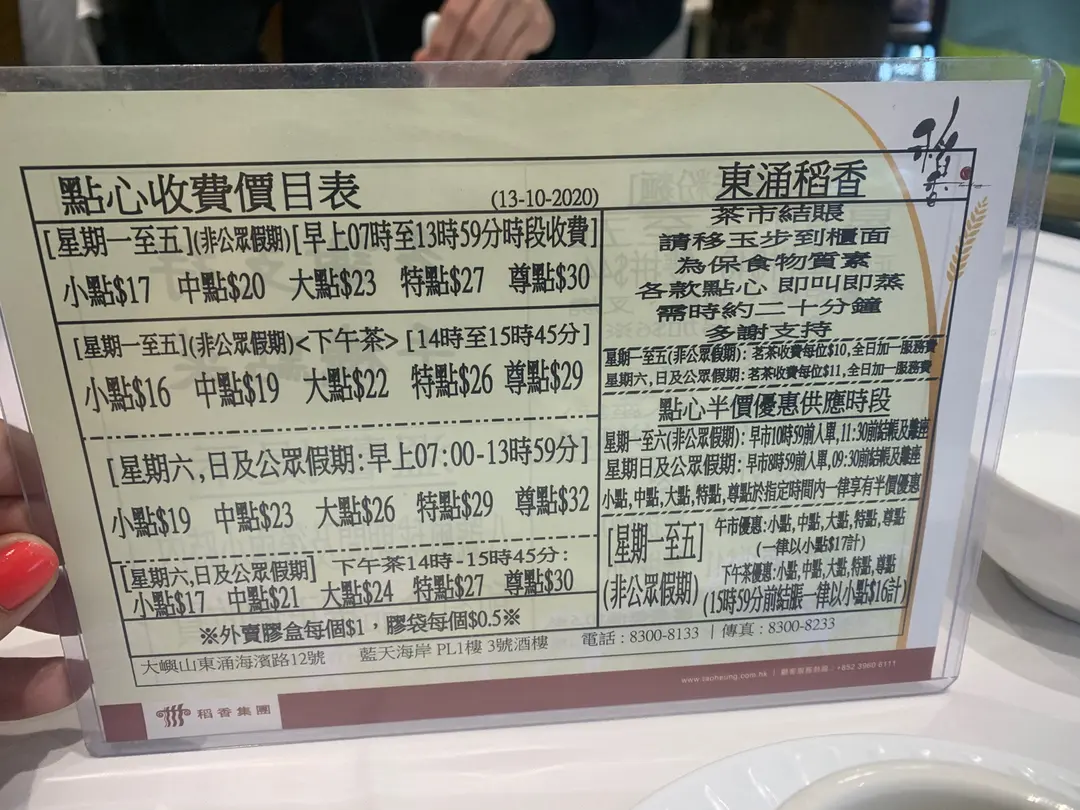 點心收費價目表 (13-10-2020)
[星期一至五](非公眾假期)[早上07時至13時59分時段收費]
小點$17 中點$20 大點$23 特點$27 尊點$30
[星期一至五](非公眾假期)<下午茶> [14時至15時45分]
小點$16 中點$19 大點$22 特點$26 尊點$29
[星期六,日及公眾假期:早上07:00-13時59分]
小點$19 中點$23 大點$26 特點$29 尊點$32
[星期六,日及公眾假期] 下午茶14時-15時45分:
小點$17 中點$21 大點$24 特點$27 尊點$30
※外賣膠盒每個$1，膠袋每個$0.5※
稻香
東涌稻香
茶市結賬
請移玉步到櫃面
為保食物質素
各款點心 即叫即蒸
需時約二十分鐘
多謝支持
星期一至五(非公眾假期): 茗茶收費每位$10,全日加一服務費
星期六,日及公眾假期: 茗茶收費每位$11,全日加一服務費
點心半價優惠供應時段
星期一至六(非公眾假期): 早市10時59前入單,11:30前結帳及離座
星期日及公眾假期: 早市8時59前入單,09:30前結帳及離座
小點,中點,大點,特點,尊點於指定時間內一律享有半價優惠
[星期一至五]
(非公眾假期)
午市優惠:小點,中點,大點,特點,尊點
(一律以小點$17計)
下午茶優惠:小點,中點,大點,特點,尊點
(15時59分前結賬一律以小點$16計)
大嶼山東涌海濱路12號 藍天海岸 PL1樓 3號酒樓 電話 : 8300-8133 | 傳真 : 8300-8233
www.taoheung.com.hk | 顧客服務熱線 : +852 3960 6111
稻香集團